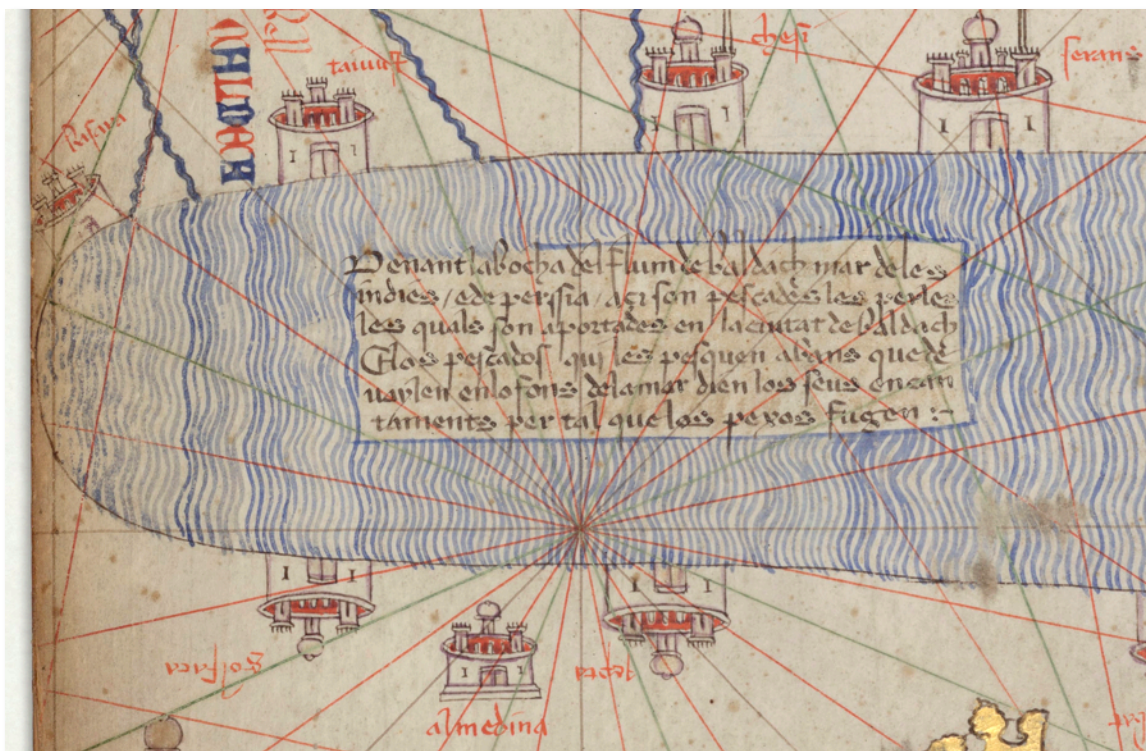 taiuust
chesi
serans
Basara
Denant la bocha del flum de baldach mar de les
indies / e de perssia / açi son pescades les perles
les quals son aportades en la ciutat de baldach
E los pescados qui les pesquen abans que de
uarlen en lo fons dela mar dien los seus encan
taments per tal que los pexos fugen :~
golfara
almedina